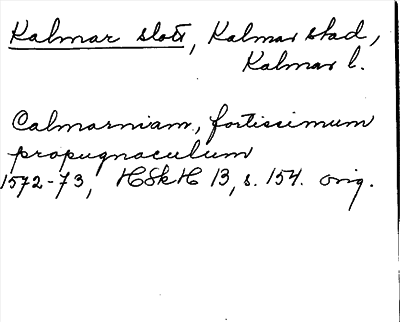 Kalmar slott, Kalmar stad,
Kalmar l.
Calmarniam, fortissimum
propugnaculum
1572-73, HSkH 13, s. 154. orig.